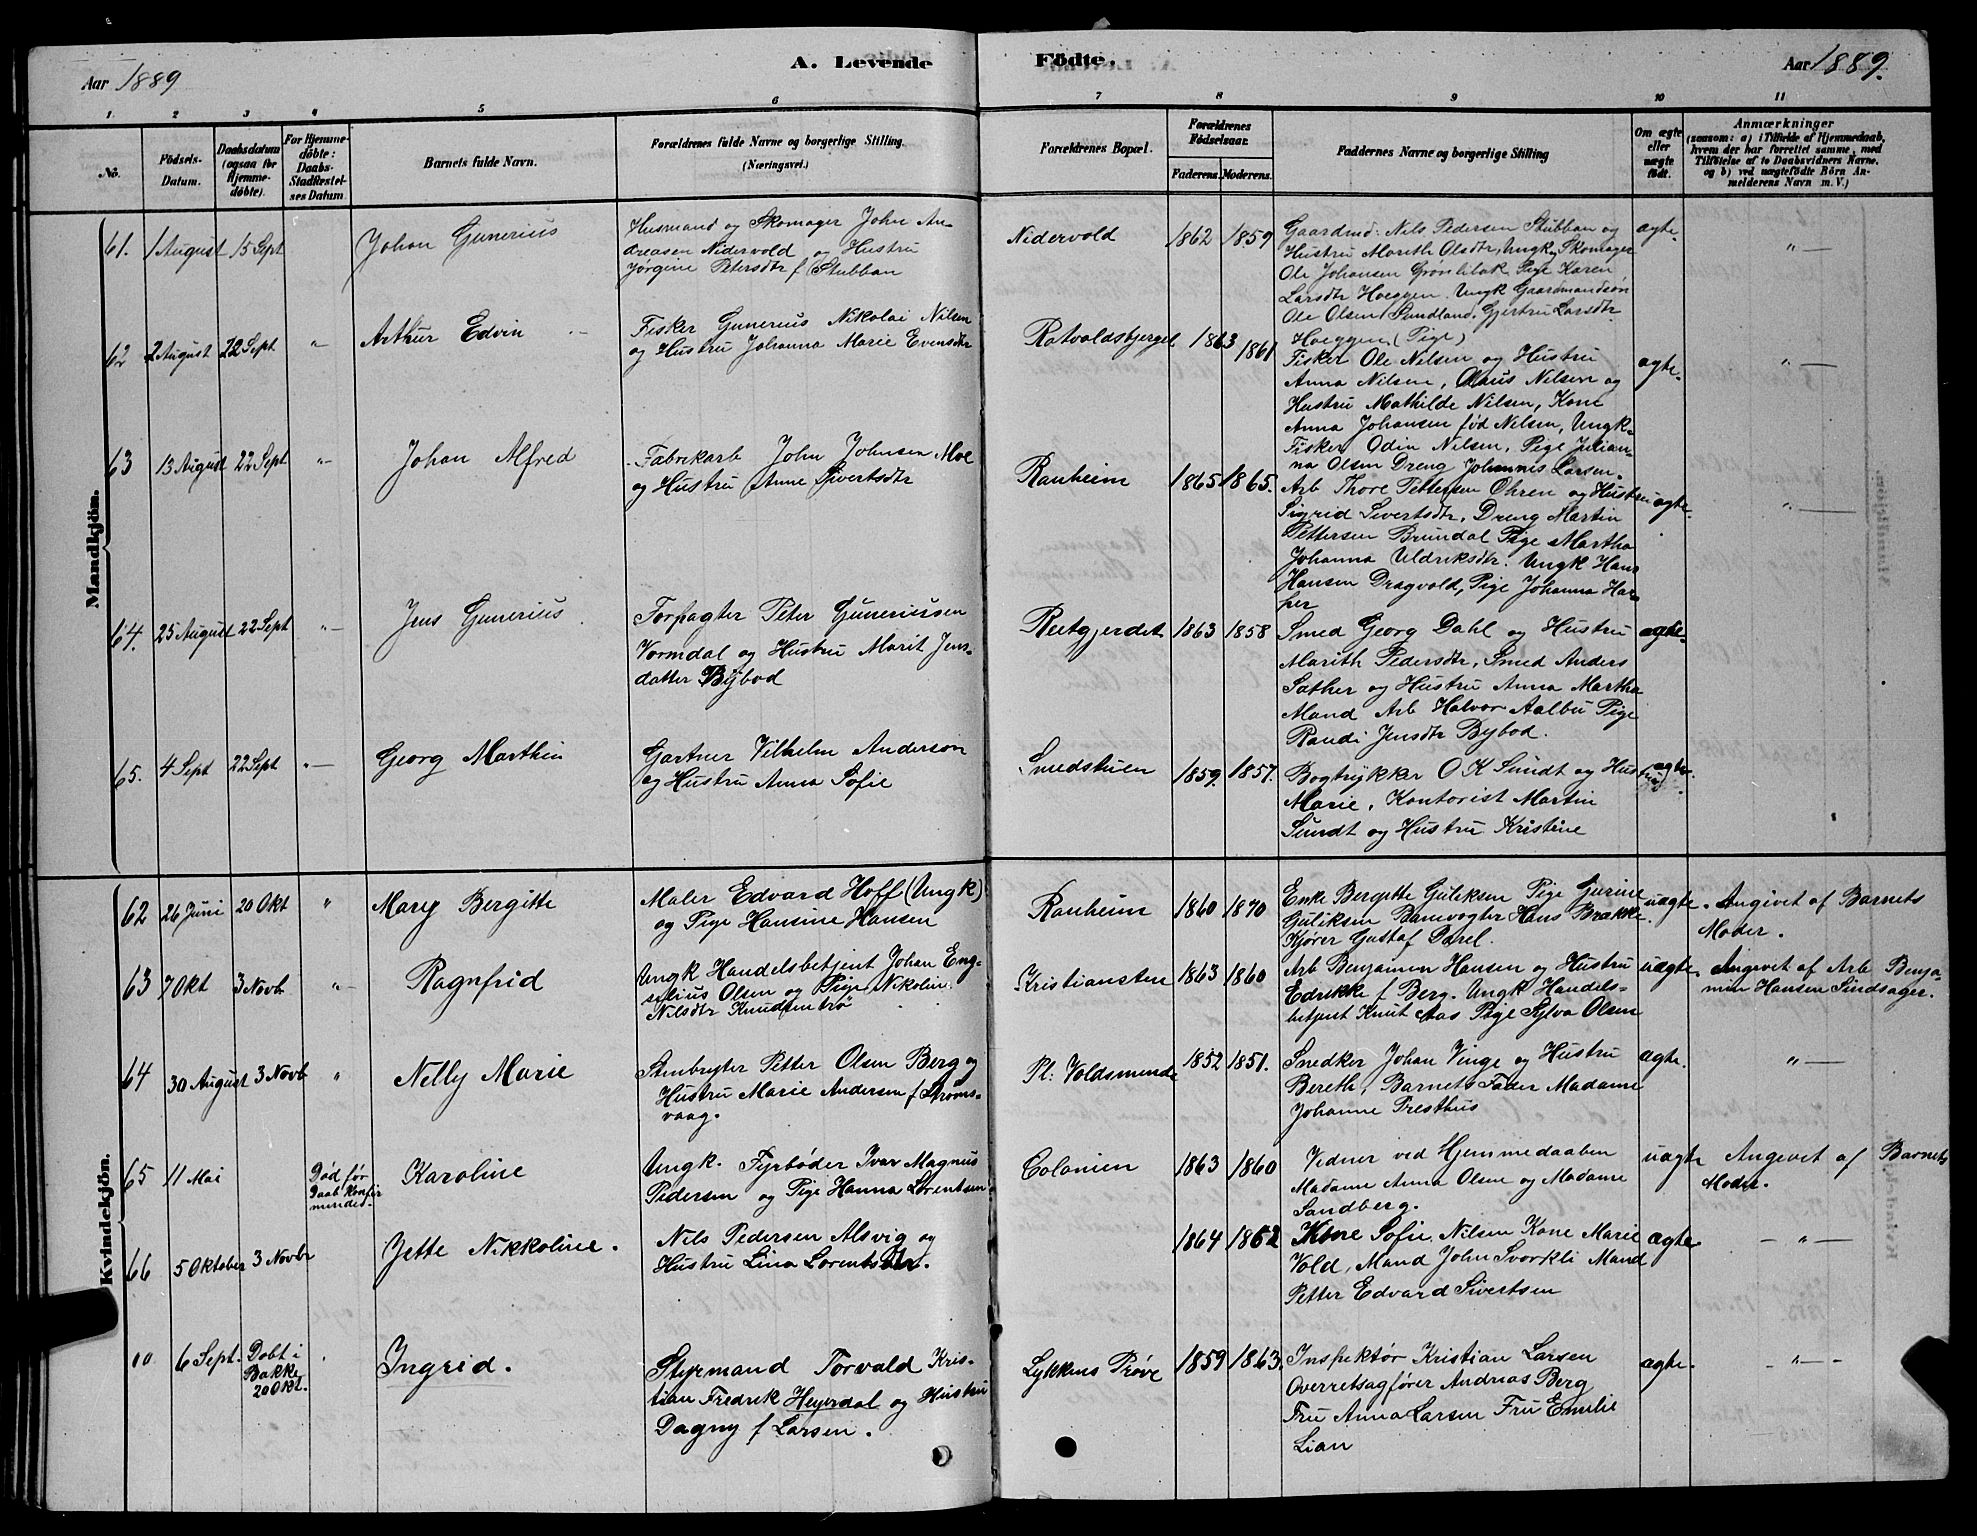 Aar 1889
A. Levende Födte.
Aar 1889.
1. 2 3 4 5 6 7 8 9 10 11
No.
Födsels-Datum.
Daabsdatum (ogsaa for Hjemme-döbte).
For Hjemme-döbte: Daabs-Stadfæstel-ses Datum.
Barnets fulde Navn.
Forældrenes fulde Navne og borgerlige Stilling. (Næringsvei.)
Forældrenes Bopæl.
Forældrenes Födselsaar.
Faderens. Moderens.
Faddernes Navne og borgerlige Stilling
Om ægte eller uægte födt.
Anmærkninger
(saasom: a) i Tilfælde af Hjemmedaab, hvem der har forrettet samme, med Tilföielse af to Daabsvidners Navne, og b) ved uægtefödte Börn Anmelderens Navn m. V.)
Mandkjön.
61. 1 August 15 Sept
Johan Gunerius
Husmand og Skomager John An-
dreasen Nidervold og Hustru
Jørgine Petersdtr f Stubban
Nidervold 1862 1859
Gaardmd: Nils Pedersen Stubban og
Hustru Marith Olsdtr, Ungk Skomager
Ole Johansen Grønlibak, Pige Karen
Larsdtr Hoeggen. Ungk Gaardmandsøn
Ole Olsen Sundland, Gjertru Larsdtr
Hoeggen (Pige)
ægte. " —
62 2 August 22 Sept " —
Arthur Edvin
Fisker Gunerius Nikolai Nilsen
og Hustru Johanna Marie Evensdtr
Rotvoldsbjerget 1863 1861
Fisker Ole Nilsen og Hustru
Anna Nilsen, Olaus Nilsen og
Hustru Mathilde Nilsen, Kone
Anna Johansen fød Nilsen, Ungk-
Fisker Odin Nilsen, Pige Julian-
na Olsen Dreng Johannes Larsen.
ægte. " —
63 13 August 22 Sept " —
Johan Alfred
Fabrikarb John Johnsen Moe
og Hustru Anne Sivertsdtr
Ranheim 1865 1865.
Arb Thore Pettersen Ohren og Hustru
Sigrid Sivertsdtr, Dreng Martin
Pettersen Brundal Pige Martha
Johanna Uldriksdtr. Ungk Hans
Hansen Dragvold, Pige Johanna Har-
per
ægte. " —
64. 25 August 22 Sept " —
Jens Gunerius
Forpagter Peter Guneriussen
Vormdal og Hustru Marit Jens-
datter Bybod
Reitgjerdet 1863 1858
Smed Georg Dahl og Hustru
Marith Pedersdtr, Smed Anders
Sæther og Hustru Anna Martha
Mand Arb Halvor Aalbu Pige
Randi Jensdtr Bybod.
ægte.
65. 4 Sept 22 Sept " —
Georg Marthin
Gartner Vilhelm Anderson
og Hustru Anna Sofie
Smedstuen 1859. 1857.
Bogtrykker O K Sundt og Hustru
Marie, Kontorist Martin
Sundt og Hustru Kristine
ægte.
Kvindekjön.
62 26 Juni 20 Okt "
Mary Bergitte
Maler Edvard Hoff (Ungk)
og Pige Hansine Hansen
Ranheim 1860 1870
Enke Bergitte Guliksen Pige Gurine
Guliksen Banevogter Hans Brække
Kjører Gustaf Parel.
uægte. Angivet af Barnets
Moder.
63 7 Okt 3 Novb " —
Ragnfrid
Ungk Handelsbetjent Johan Eng-
Olsen og Pige Nikolin
Nilsdtr Knudsentrø
Kristiansten 1863 1860
Arb Benjamin Hansen og Hustru
Edrikke f Berg. Ungk Handels-
betjent Knut Aas Pige Sylva Olsen
uægte. Angivet af Arb Benja-
min Hansen Sindsager.
64 30 August 3 Novb "
Nelly Marie
Stenbryter Petter Olsen Berg og
Hustru Marie Andersen f Strøms-
vaag.
Pl: Voldsminde 1852 1851.
Snedker Johan Vinge og Hustru
Bereth, Barnets Fader Madame
Johanne Presthus
ægte. " —
65 11 Mai
Død før
Daab konfir
mended.
Karoline
Ungk. Fyrbøder Ivar Magnus
Pedersen og Pige Hanna Lorentsen
Colonien 1863 1860
Vidner ved Hjemmedaaben
Madame Anna Olsen og Madame
Sandberg.
uægte Angivet af Barnets
Moder.
66 5 Oktober 3 Novbr
Jette Nikkoline.
Nils Pedersen Alsvig og
Hustru Lina Lorentsdtr.
1864 1862
Kone Sofie Nilsen Kone Marie
Vold, Mand John Svorkli Mand
Petter Edvard Sivertsen
ægte — " —
00 6 Sept.
Døbt i
Bakke
20 Okt.
Ingrid.
Styrmand Torvald Kris-
tian Fredrik Heyerdal og Hustru
Dagny f Larsen.
Lykkens Prøve 1859 1863.
Inspektør Kristian Larsen
Overretsagfører Andreas Berg
Fru Anna Larsen Fru Emilie
Lian
ægte. — " —